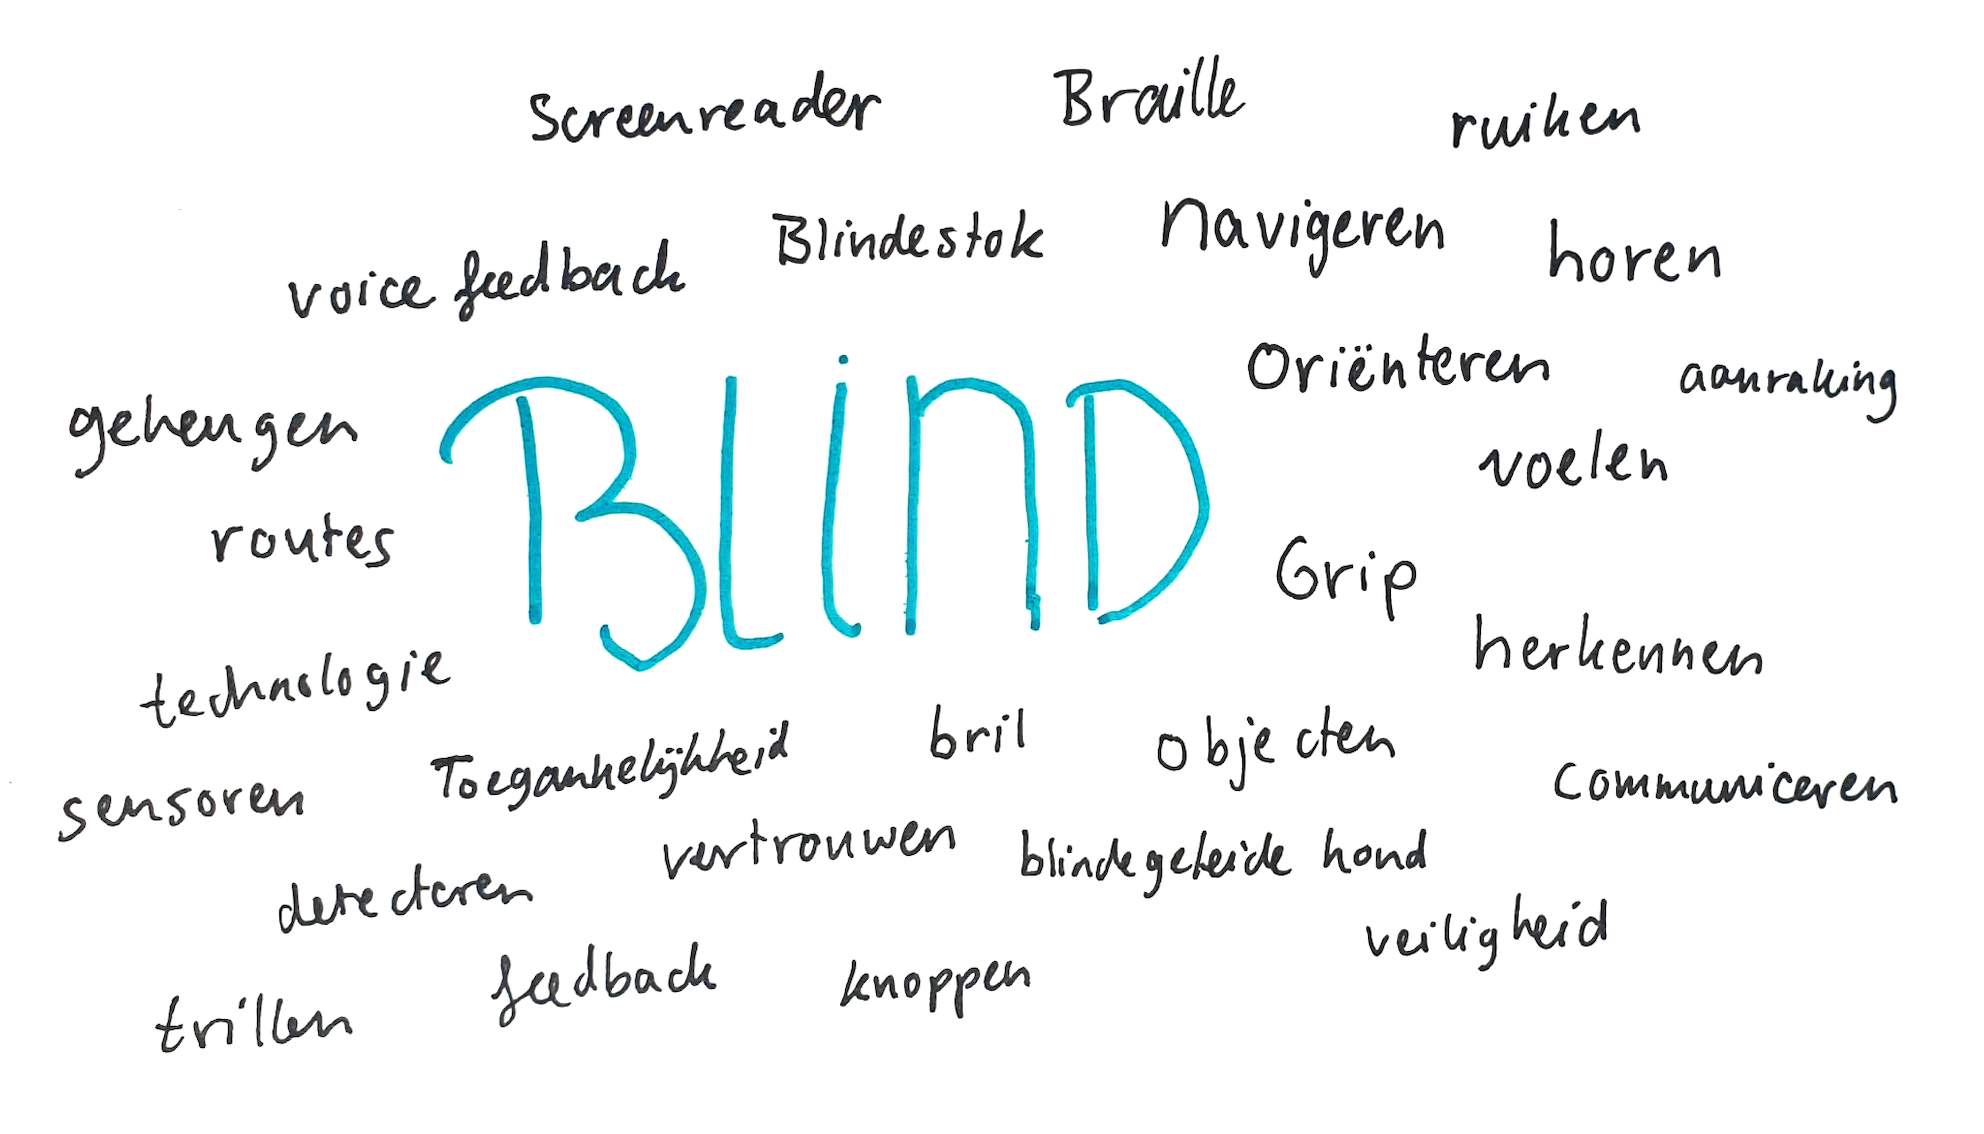 Screenreader
Braille
ruiken
voice feedback
Blindestok
navigeren
horen
Oriënteren
aanraking
geheugen
BLinD
voelen
routes
Grip
herkennen
technologie
Toegankelijkheid
bril
objecten
communiceren
sensoren
vertrouwen
blindegeleide hond
detecteren
veiligheid
feedback
knoppen
trillen